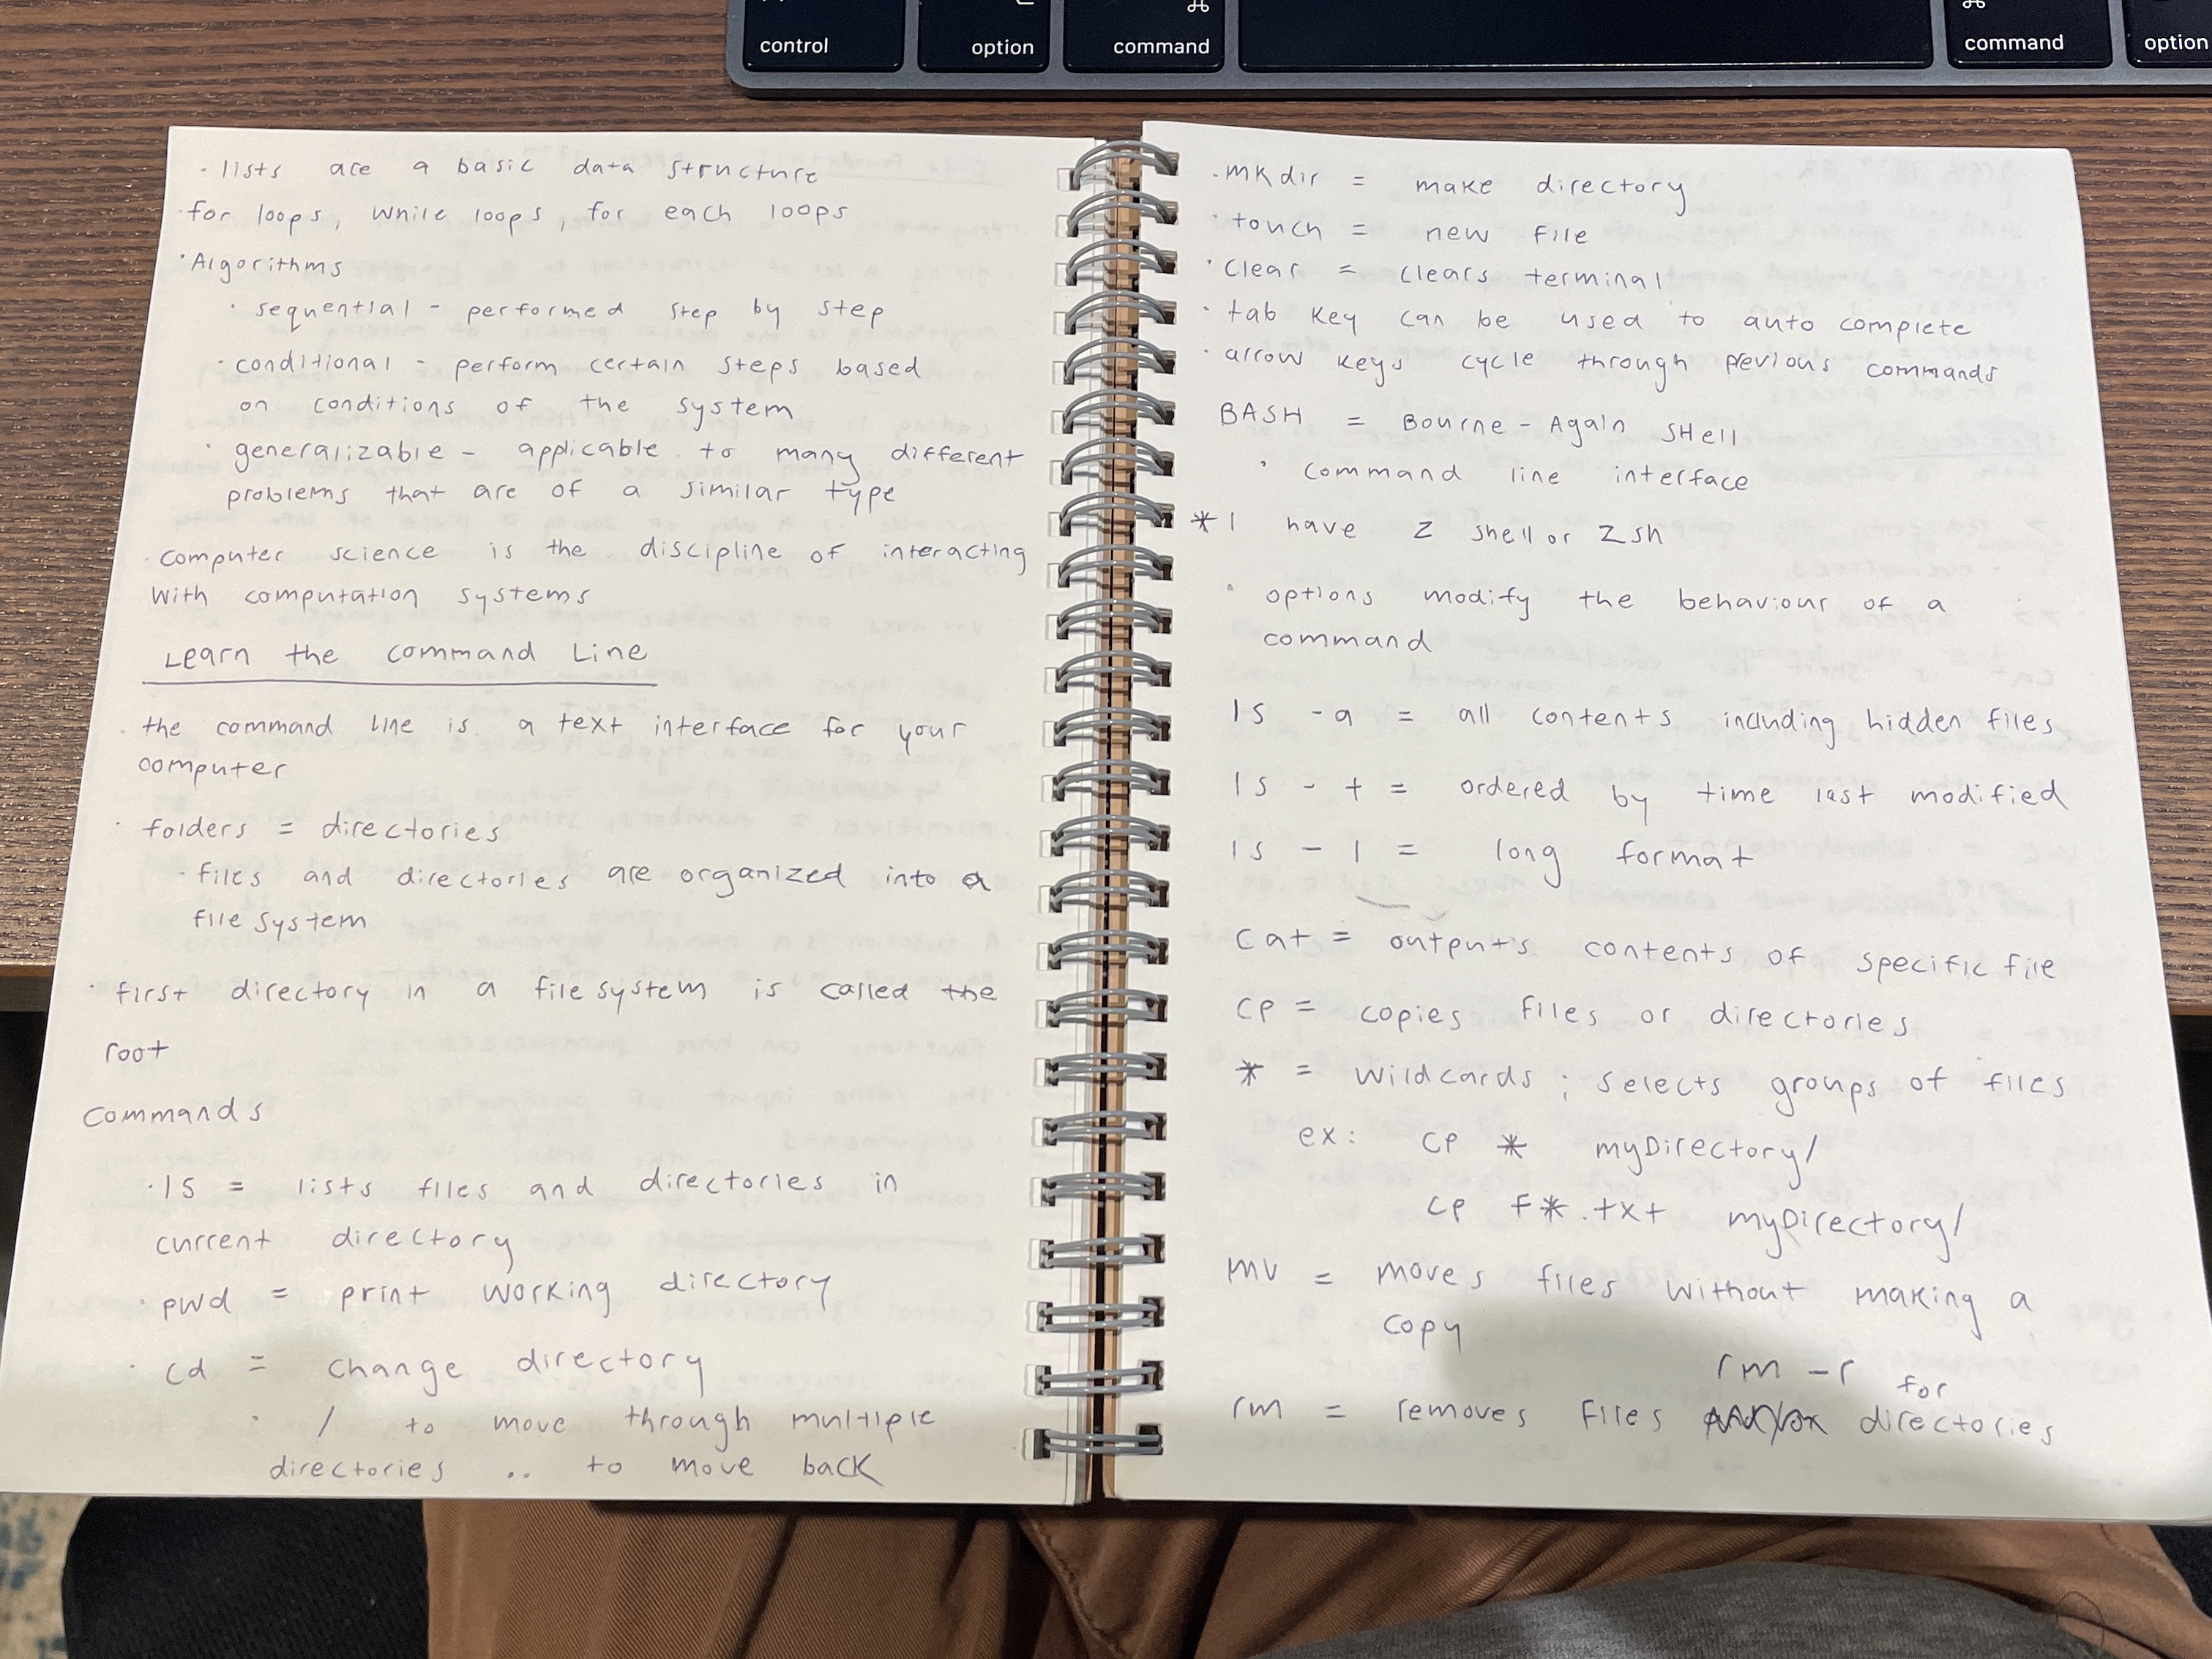 control option command command option
· lists are a basic data structure
· for loops, while loops, for each loops
· Algorithms
· sequential - performed step by step
· conditional - perform certain steps based
on conditions of the system
· generalizable - applicable to many different
problems that are of a similar type
· computer science is the discipline of interacting
with computation systems
Learn the command Line
· the command line is a text interface for your
computer
· folders = directories
· files and directories are organized into a
file system
· first directory in a file system is called the
root
commands
· ls = lists files and directories in
current directory
· pwd = print working directory
· cd = change directory
· / to move through multiple
directories .. to move back
· mkdir = make directory
· touch = new file
· clear = clears terminal
· tab key can be used to auto complete
· arrow keys cycle through pevious commands
BASH = Bourne - Again SHell
· command line interface
* I have Z shell or Zsh
· options modify the behaviour of a
command
ls -a = all contents including hidden files
ls -t = ordered by time last modified
ls -l = long format
cat = outputs contents of specific file
cp = copies files or directories
* = wildcards ; selects groups of files
ex: cp * myDirectory/
cp f*.txt myDirectory/
mv = moves files without making a
copy
rm -r for
rm = removes files and/or directories